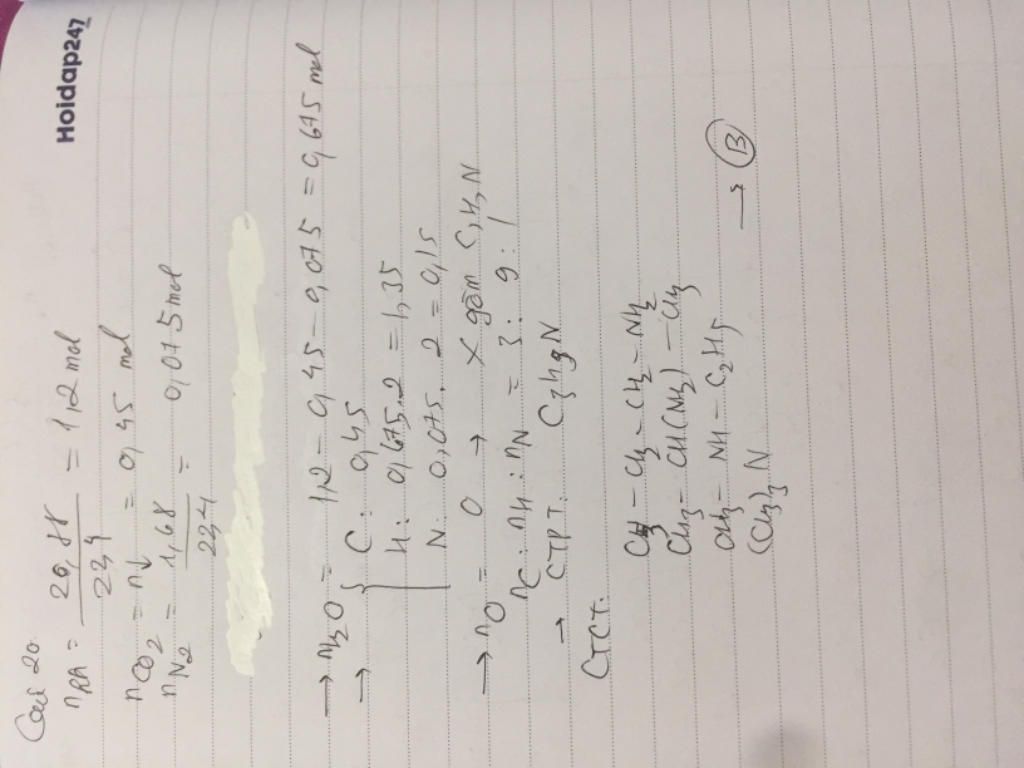 Hoidap247
Câu 20.
nRA = 26,88 / 22,4 = 1,2 mol
nCO2 = n↓ = 0,45 mol
nN2 = 1,68 / 22,4 = 0,075 mol
→ nH2O = 1,2 - 0,45 - 0,075 = 0,675 mol
→ { C: 0,45
H: 0,675.2 = 1,35
N: 0,075.2 = 0,15
→ nO = 0 → X gồm C, H, N
nC : nH : nN = 3 : 9 : 1
→ CTPT: C3H9N
CTCT:
CH3 - CH2 - CH2 - NH2
CH3 - CH(NH2) - CH3
CH3 - NH - C2H5
(CH3)3N → B